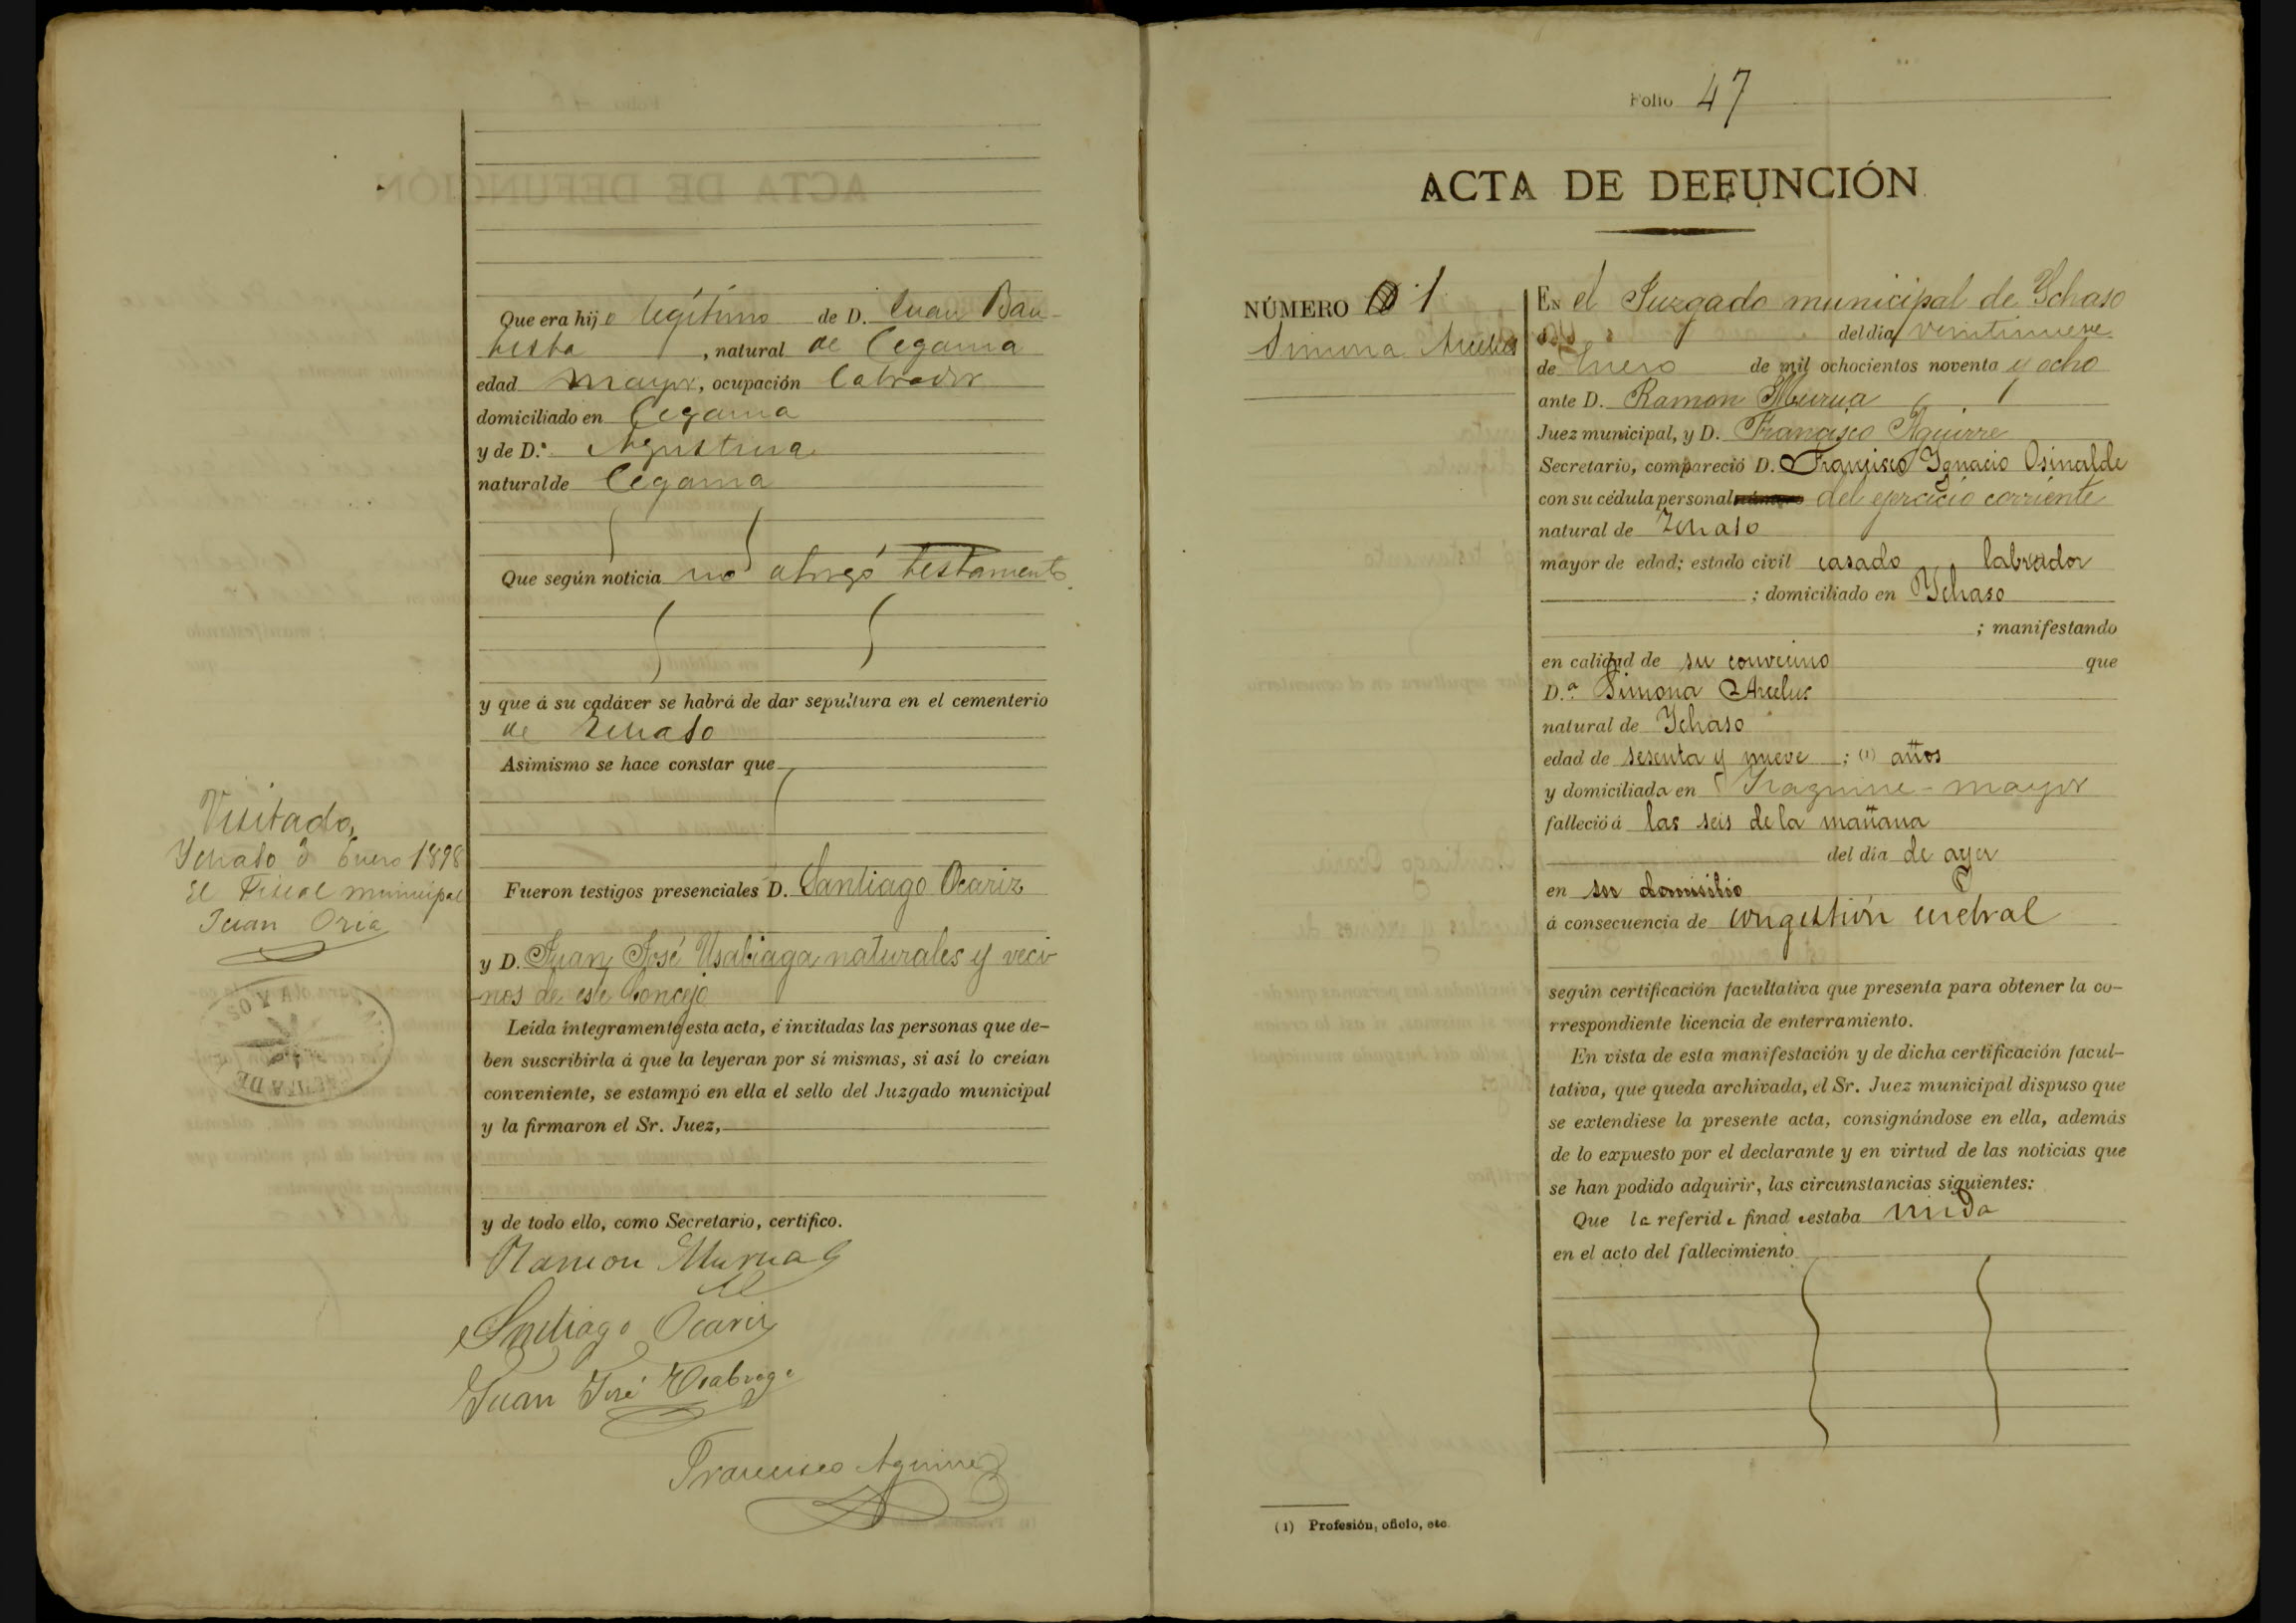 Que era hijo legítimo de D. Juan Bau-
tista, natural de Cegama
edad mayor, ocupación labrador
domiciliado en Cegama
y de D.ª Agustina
natural de Cegama
Que según noticia no otorgó testamento
y que á su cadáver se habrá de dar sepultura en el cementerio
de Ichaso
Asimismo se hace constar que
Visitado,
Ychaso 3 Enero 1898
El Fiscal municipal
Juan Oria
Fueron testigos presenciales D. Santiago Ocariz
y D. Juan José Usabiaga naturales y veci-
nos de este Concejo
Leída íntegramente esta acta, é invitadas las personas que de-
ben suscribirla á que la leyeran por sí mismas, si así lo creían
conveniente, se estampó en ella el sello del Juzgado municipal
y la firmaron el Sr. Juez,
y de todo ello, como Secretario, certifico.
Ramon Murua
Santiago Ocariz
Juan José Usabiaga
Francisco Aguirre
Folio 47
ACTA DE DEFUNCIÓN
NÚMERO 1
Simona Arcelus
EN el Juzgado municipal de Ychaso
del día veintinueve
de Enero de mil ochocientos noventa y ocho
ante D. Ramon Murua
Juez municipal, y D. Francisco Aguirre
Secretario, compareció D. Francisco Ygnacio Osinalde
con su cédula personal del ejercicio corriente
natural de Ichaso
mayor de edad; estado civil casado labrador
; domiciliado en Ychaso
; manifestando
en calidad de su convecino que
D.ª Simona Arcelus
natural de Ychaso
edad de sesenta y nueve ; (1) años
y domiciliada en Iraguirre-mayor
falleció á las seis de la mañana
del día de ayer
en su domicilio
á consecuencia de congestión cerebral
según certificación facultativa que presenta para obtener la co-
rrespondiente licencia de enterramiento.
En vista de esta manifestación y de dicha certificación facul-
tativa, que queda archivada, el Sr. Juez municipal dispuso que
se extendiese la presente acta, consignándose en ella, además
de lo expuesto por el declarante y en virtud de las noticias que
se han podido adquirir, las circunstancias siguientes:
Que la referida finada estaba viuda
en el acto del fallecimiento
(1) Profesión, oficio, etc.